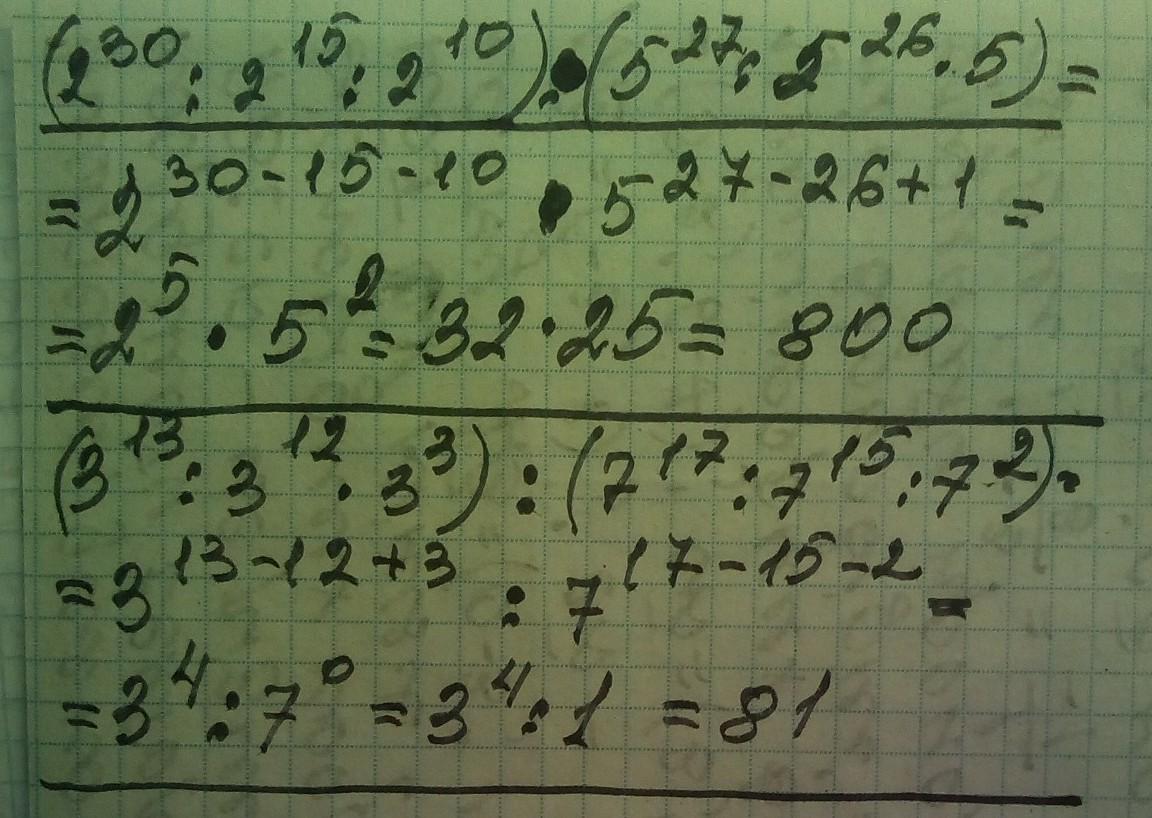 (2³⁰ : 2¹⁵ : 2¹⁰) · (5²⁷ : 2²⁶ · 5) =
= 2³⁰⁻¹⁵⁻¹⁰ · 5²⁷⁻²⁶⁺¹ =
= 2⁵ · 5² = 32 · 25 = 800
(3¹³ : 3¹² · 3³) : (7¹⁷ : 7¹⁵ : 7²) =
= 3¹³⁻¹²⁺³ : 7¹⁷⁻¹⁵⁻² =
= 3⁴ : 7⁰ = 3⁴ : 1 = 81